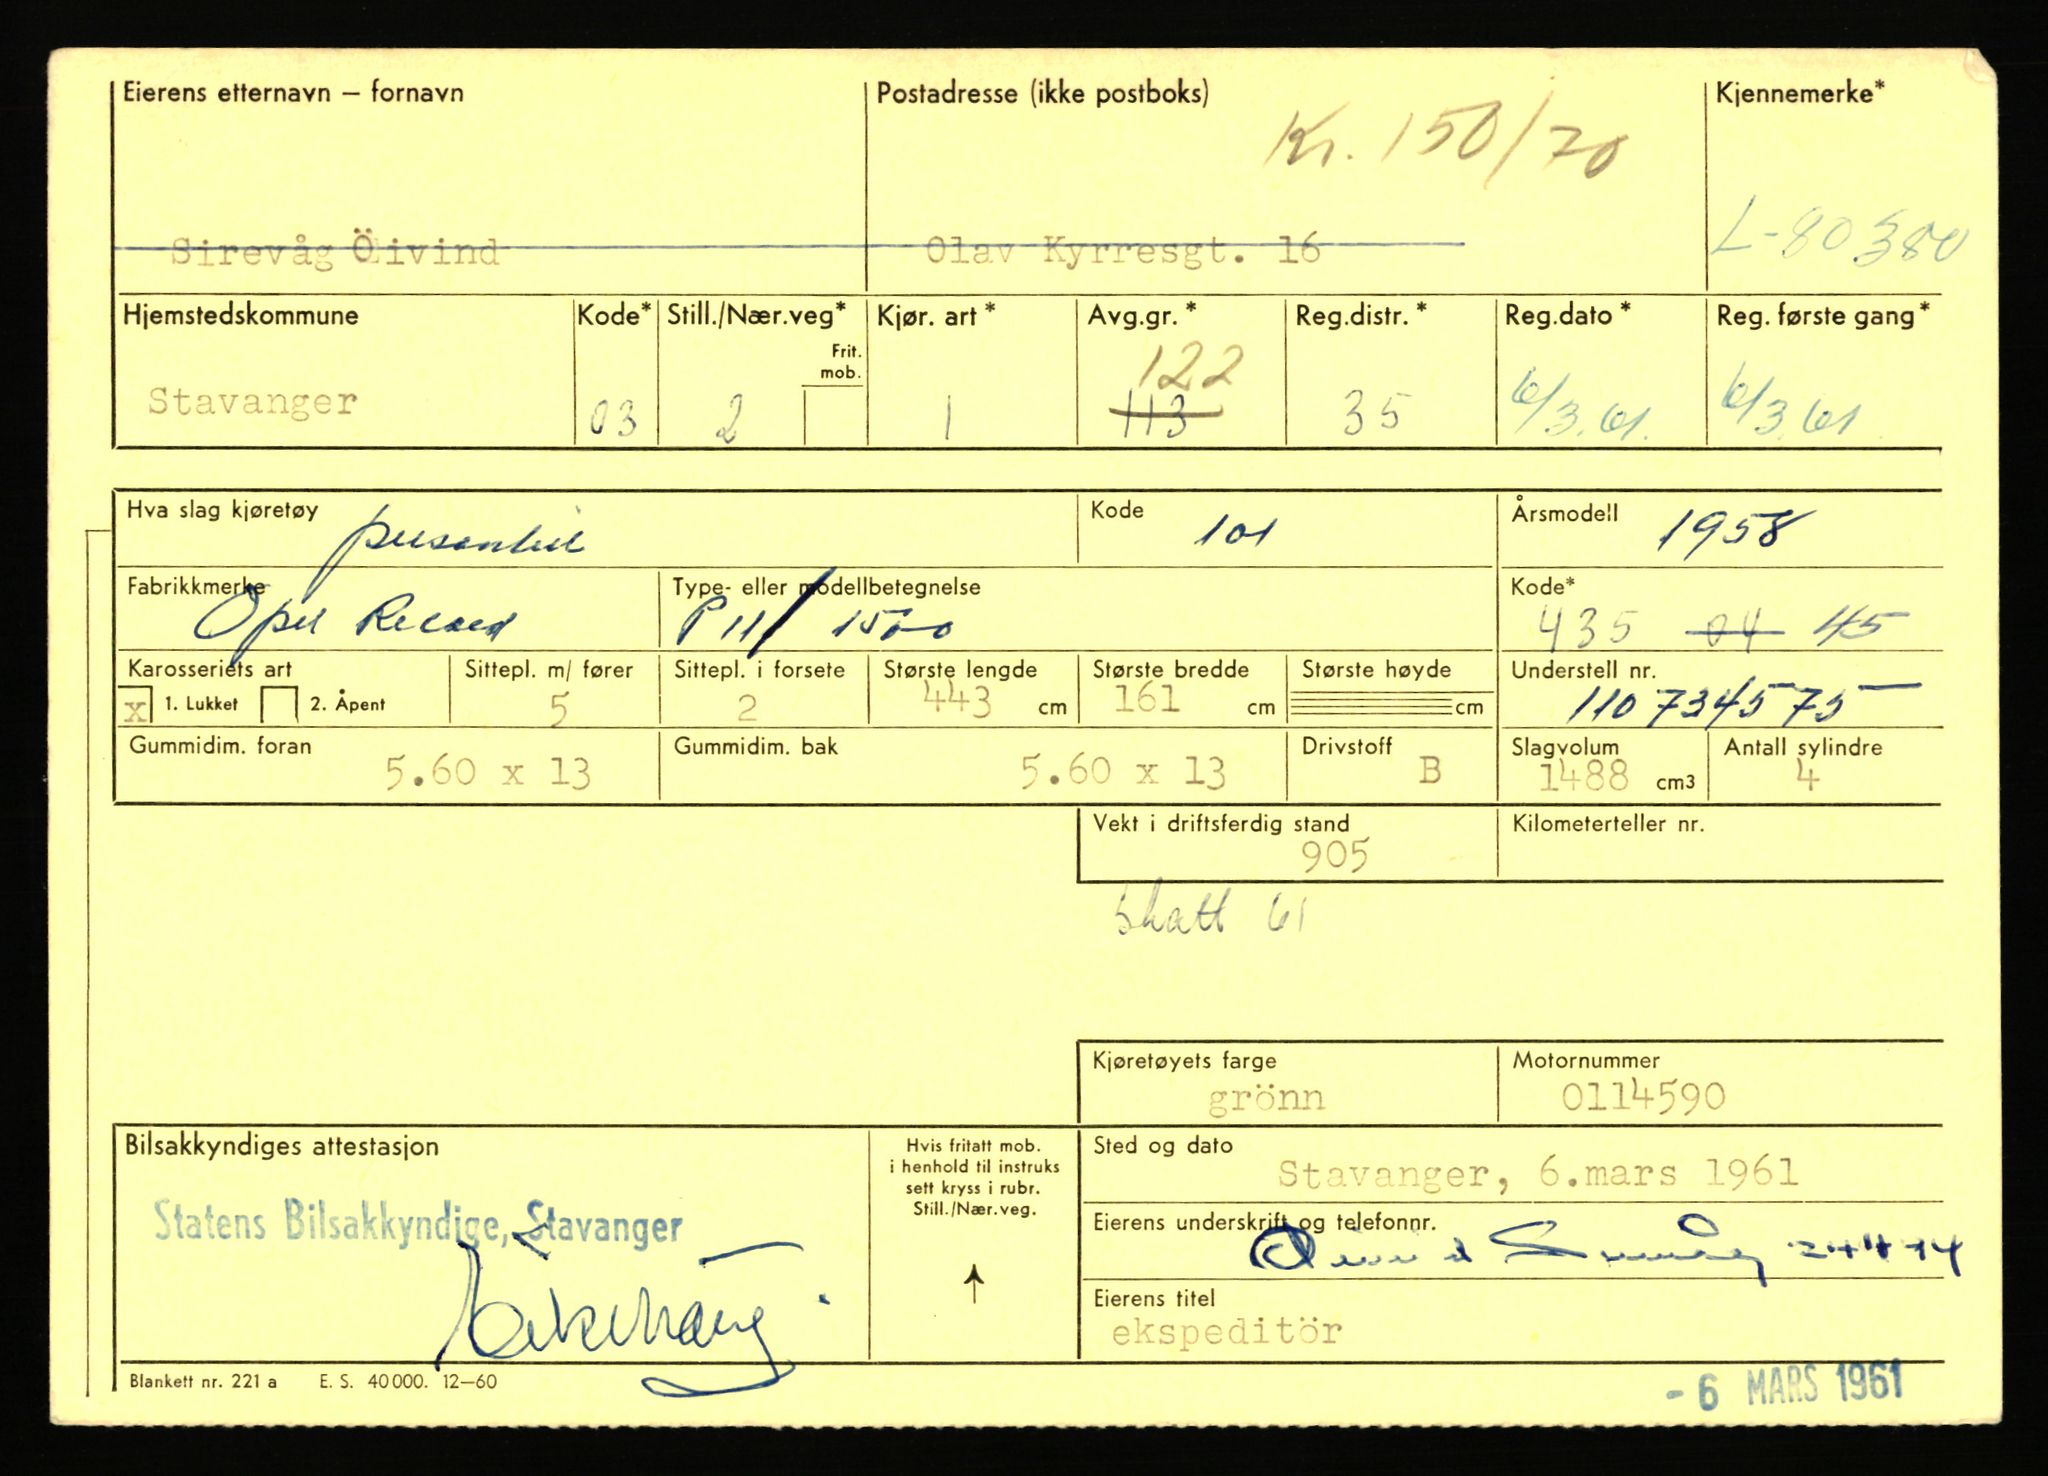 Eierens etternavn – fornavn Postadresse (ikke postboks) Kjennemerke*
Kr. 150/70
Sirevåg Öivind Olav Kyrresgt. 16 L-80380
Hjemstedskommune Kode* Still./Nær.veg* Kjør. art * Avg.gr. * Reg.distr. * Reg.dato * Reg. første gang*
Frit.
mob.
122
Stavanger 03 2 1 113 35 6/3.61. 6/3.61
Hva slag kjøretøy personbil Kode 101 Årsmodell 1958
Fabrikkmerke Type- eller modellbetegnelse Kode*
Opel Record P 11/ 1500 435 04 45
Karosseriets art Sittepl. m/ fører Sittepl. i forsete Største lengde Største bredde Største høyde Understell nr.
x 1. Lukket 2. Åpent 5 2 443 cm 161 cm cm 110734575
Gummidim. foran Gummidim. bak Drivstoff Slagvolum Antall sylindre
5.60 x 13 5.60 x 13 B 1488 cm3 4
Vekt i driftsferdig stand Kilometerteller nr.
905
Skatt 61
Kjøretøyets farge Motornummer
grönn 0114590
Bilsakkyndiges attestasjon Hvis fritatt mob.
i henhold til instruks
sett kryss i rubr.
Still./Nær.veg.
Sted og dato
Stavanger, 6.mars 1961
Statens Bilsakkyndige, Stavanger
Eierens underskrift og telefonnr.
Eierens titel
ekspeditör
Blankett nr. 221 a E. S. 40 000. 12–60
- 6 MARS 1961